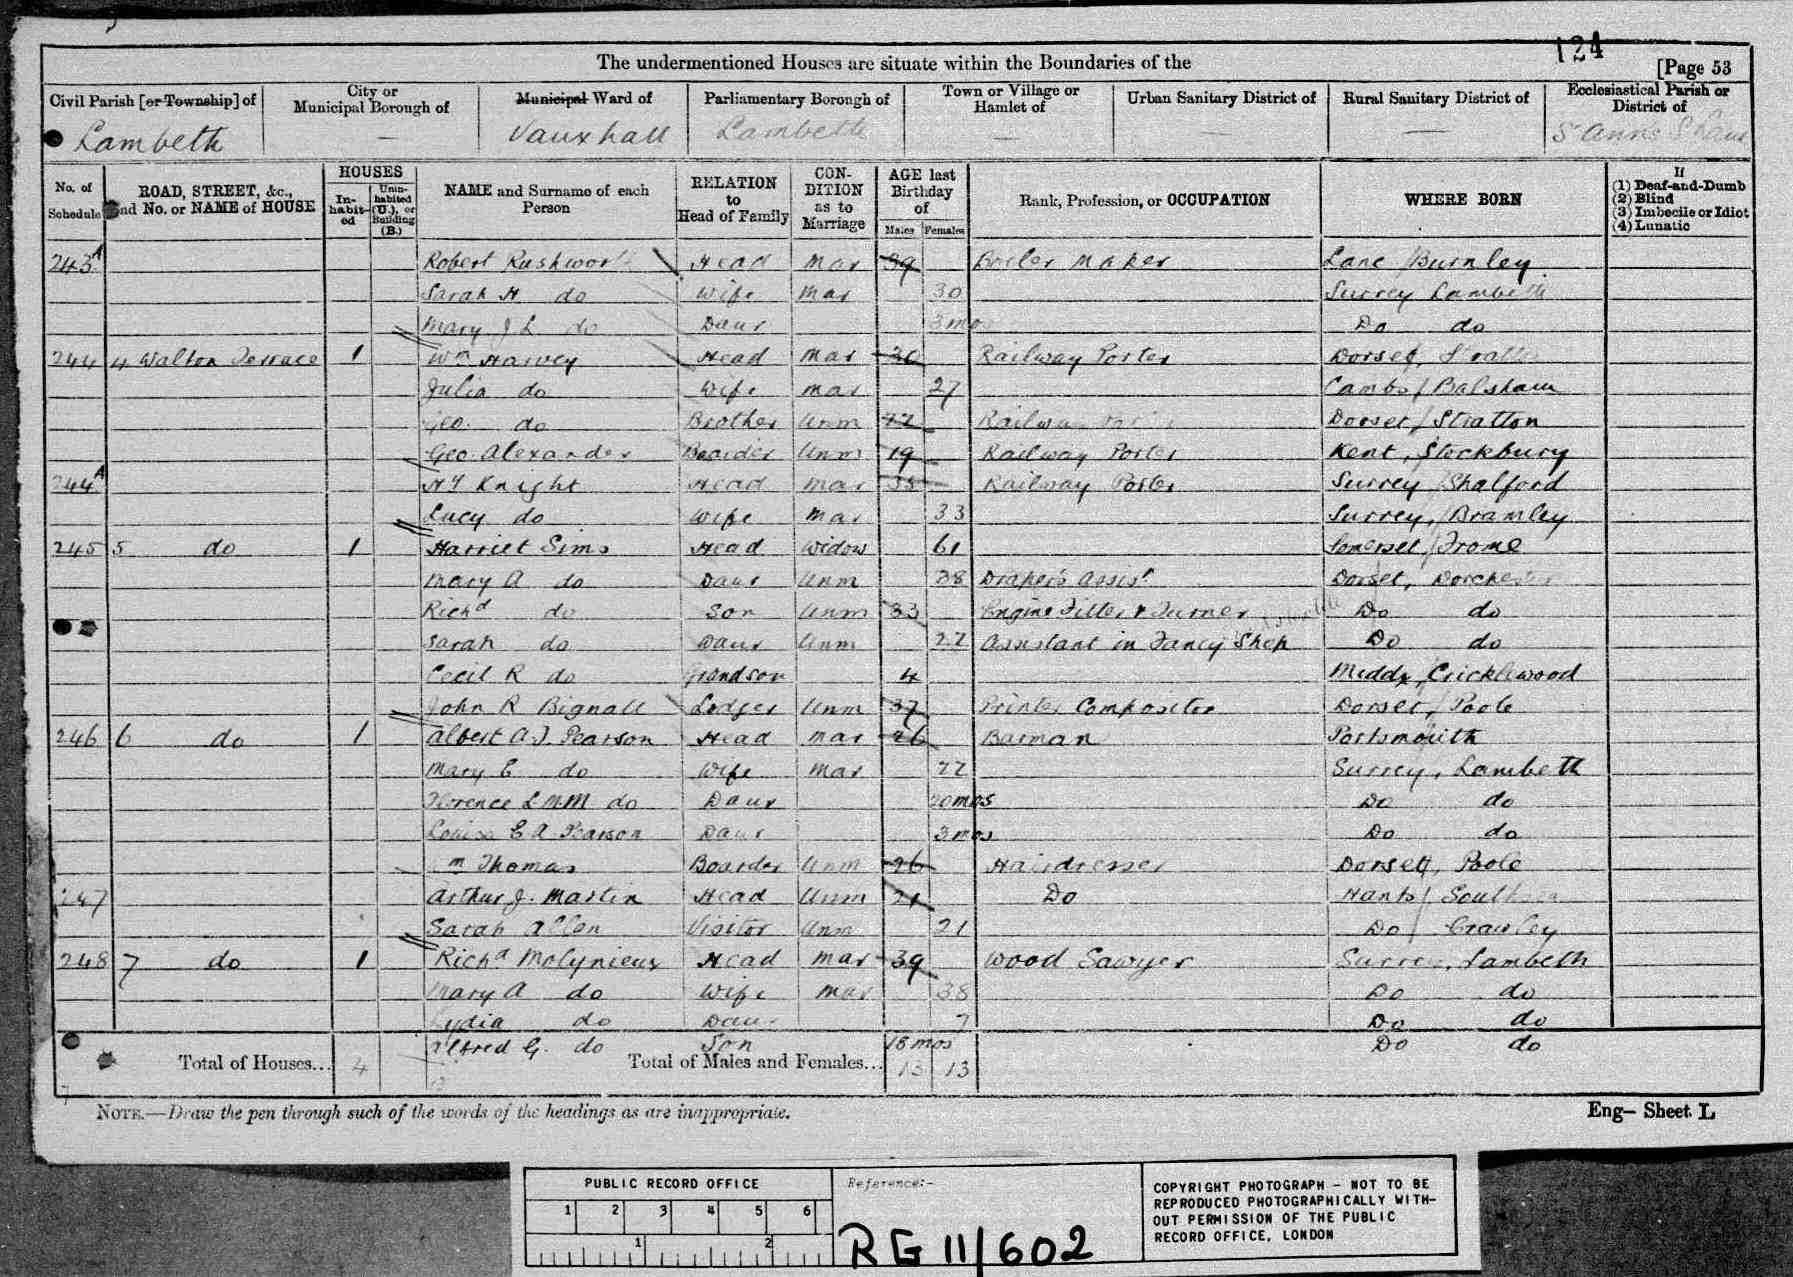 124
The undermentioned Houses are situate within the Boundaries of the [Page 53
Civil Parish [or Township] of City or Municipal Borough of Municipal Ward of Parliamentary Borough of Town or Village or Hamlet of Urban Sanitary District of Rural Sanitary District of Ecclesiastical Parish or District of
Lambeth — Vauxhall Lambeth — — — St Anns S Lam
No. of Schedule ROAD, STREET, &c., and No. or NAME of HOUSE HOUSES Inhabited Uninhabited (U.), or Building (B.) NAME and Surname of each Person RELATION to Head of Family CONDITION as to Marriage AGE last Birthday of Males Females Rank, Profession, or OCCUPATION WHERE BORN If (1) Deaf-and-Dumb (2) Blind (3) Imbecile or Idiot (4) Lunatic
243A Robert Rushworth Head Mar 39 Boiler Maker Lanc Burnley
Sarah H do Wife Mar 30 Surrey Lambeth
Mary J L do Daur 3 mos Do do
244 4 Walton Terrace 1 Wm Harvey Head Mar 30 Railway Porter Dorset, Stratton
Julia do Wife Mar 27 Cambs Balsham
Geo. do Brother Unm 22 Railway Dorset Stratton
Geo. Alexander Boarder Unm 19 Railway Porter Kent, Stockbury
244A Hy Knight Head Mar 35 Railway Porter Surrey Shalford
Lucy do Wife Mar 33 Surrey, Bramley
245 5 do 1 Harriet Sims Head Widow 61 Somerset Frome
Mary A do Daur Unm 38 Draper's Assist Dorset, Dorchester
Richd do Son Unm 33 Engine Fitter & Turner Do do
Sarah do Daur Unm 22 Assistant in Fancy Shop Do do
Cecil R do Grandson 4 Middx, Cricklewood
John R Bignall Lodger Unm 37 Printer Compositor Dorset, Poole
246 6 do 1 Albert A.J. Pearson Head Mar 26 Barman Portsmouth
Mary E do Wife Mar 22 Surrey, Lambeth
Florence L M M do Daur 20 mos Do do
Louisa E A Pearson Daur 3 mos Do do
Wm Thomas Boarder Unm 26 Hairdresser Dorset, Poole
247 Arthur J. Martin Head Unm 21 Do Hants Southsea
Sarah Allen Visitor Unm 21 Do Crawley
248 7 do 1 Richd Molynieux Head Mar 39 Wood Sawyer Surrey, Lambeth
Mary A do Wife Mar 38 Do do
Lydia do Daur 7 Do do
Alfred G. do Son 18 mos Do do
Total of Houses... 4 Total of Males and Females... 13 13
NOTE.—Draw the pen through such of the words of the headings as are inappropriate. Eng— Sheet L
PUBLIC RECORD OFFICE
1 2 3 4 5 6
1 2
Reference:-
RG 11/602
COPYRIGHT PHOTOGRAPH - NOT TO BE
REPRODUCED PHOTOGRAPHICALLY WITH-
OUT PERMISSION OF THE PUBLIC
RECORD OFFICE, LONDON